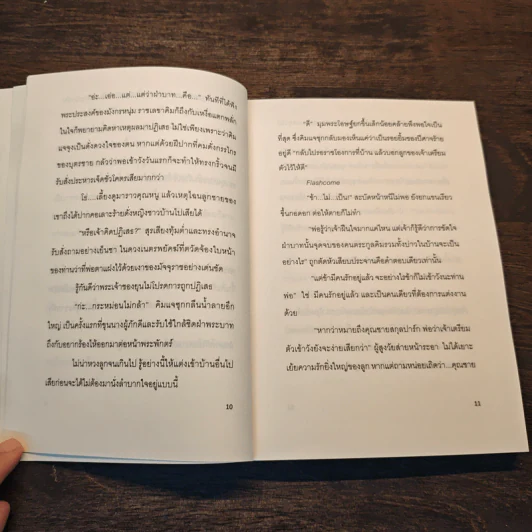 "ข่ะ...เอ่อ...แต่...แต่ว่าฝ่าบาท...คือ..." ทันทีที่ได้ฟัง
พระประสงค์ของมังกรหนุ่ม ราชเลขาคิมก็ถึงกับเหงื่อแตกพลัก
ในใจก็พยายามคิดหาเหตุผลมาปฏิเสธ ไม่ใช่เพียงเพราะว่าคิม
แจจุงเป็นดั่งดวงใจของตน หากแต่ด้วยฝีปากที่คมดั่งกรงไกร
ของบุตรชาย กลัวว่าพอเข้าวังวันแรกก็จะทำให้ทรงกริ้วจนมี
รับสั่งประหารเจ็ดชั่วโคตรเสียมากกว่า
โธ่....เลี้ยงดูมาราวคุณหนู แล้วเหตุไฉนลูกชายของ
เขาถึงได้ปากคอเลาะร้ายดั่งหญิงชาวบ้านไปเสียได้
"หรือเจ้าคิดปฏิเสธ?" สุรเสียงทุ้มต่ำและทรงอำนาจ
รับสั่งถามอย่างเย็นชา ในดวงเนตรพยัคฆ์ที่ตวัดจ้องใบหน้า
ของท่านว่าที่พ่อตาแฝงไว้ด้วยเงาของมัจจุราชอย่างเด่นชัด
รู้กันดีว่าพระเจ้าชองยุนโฮไม่โปรดการถูกปฏิเสธ
"ก่ะ...กระหม่อมไม่กล้า" คิมแจซุกกลืนน้ำลายอึก
ใหญ่ เป็นครั้งแรกที่ขุนนางผู้ภักดีและรับใช้ใกล้ชิดฝ่าพระบาท
ถึงกับอยากร้องไห้ออกมาต่อหน้าพระพักตร์
ไม่น่าหวงลูกจนเกินไป รู้อย่างนี้ให้แต่งเข้าบ้านอื่นไป
เสียก่อนจะได้ไม่ต้องมานั่งลำบากใจอยู่แบบนี้
10
"ดี" มุมพระโอษฐ์ยกขึ้นเล็กน้อยคล้ายพึงพอใจเป็น
ที่สุด ซึ่งคิมแจซุกกลับมองเห็นแค่ว่าเป็นรอยยิ้มของปีศาจร้าย
อยู่ดี "กลับไปรอราชโองการที่บ้าน แล้วบอกลูกของเจ้าเตรียม
ตัวไว้ให้ดี"
Flashcome
"ข้า...ไม่...เป็น!" สะบัดหน้าหนีไม่พอ ยังยกแขนเรียว
ขึ้นกอดอก ต่อให้ตายก็ไม่ทำ
"พ่อรู้ว่าเจ้าฝืนใจมากแค่ไหน แต่เจ้าก็รู้ดีว่าการขัดใจ
ฝ่าบาทนั้นจุดจบของคนตระกูลคิมรวมทั้งบ่าวในบ้านจะเป็น
อย่างไร" ถูกตัดหัวเสียบประจานคือคำตอบเดียวเท่านั้น
"แต่ข้ามีคนรักอยู่แล้ว จะอย่างไรข้าก็ไม่เข้าวังนะท่าน
พ่อ." ใช่ มีคนรักอยู่แล้ว และเป็นคนเดียวที่ต้องการแต่งงาน
ด้วย
"หากว่าหมายถึงคุณชายสกุลปาร์ก พ่อว่าเจ้าเตรียม
ตัวเข้าวังยังจะง่ายเสียกว่า" ผู้สูงวัยส่ายหน้าระอา ไม่ได้เยาะ
เย้ยความรักยิ่งใหญ่ของลูก หากแต่ถามหน่อยเถิดว่า...คุณชาย
11